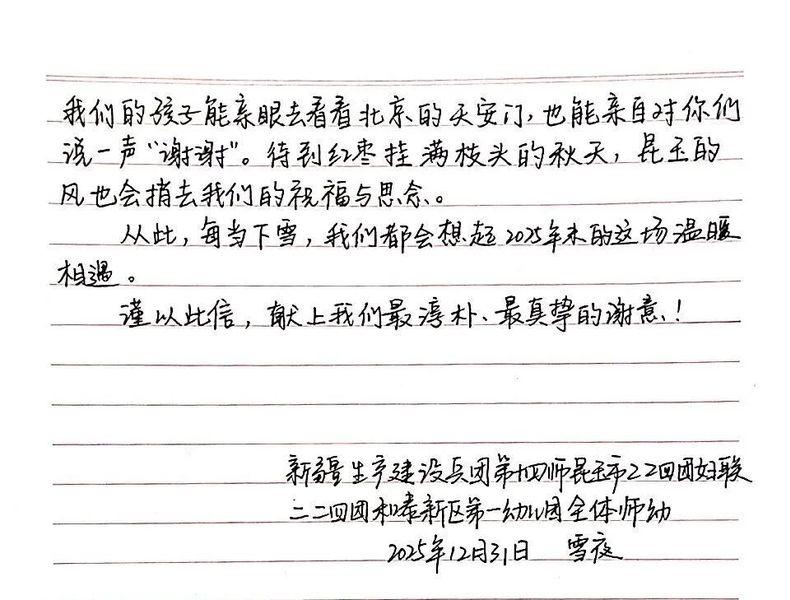 我们的孩子能亲眼去看看北京的天安门,也能亲自对你们
说一声“谢谢”。待到红枣挂满枝头的秋天,昆玉的
风也会捎去我们的祝福与思念。
从此,每当下雪,我们都会想起2025年末的这场温暖
相遇。
谨以此信,献上我们最淳朴、最真挚的谢意!
新疆生产建设兵团第十四师昆玉市二二四团妇联
二二四团和泰新区第一幼儿园全体师幼
2025年12月31日 雪夜